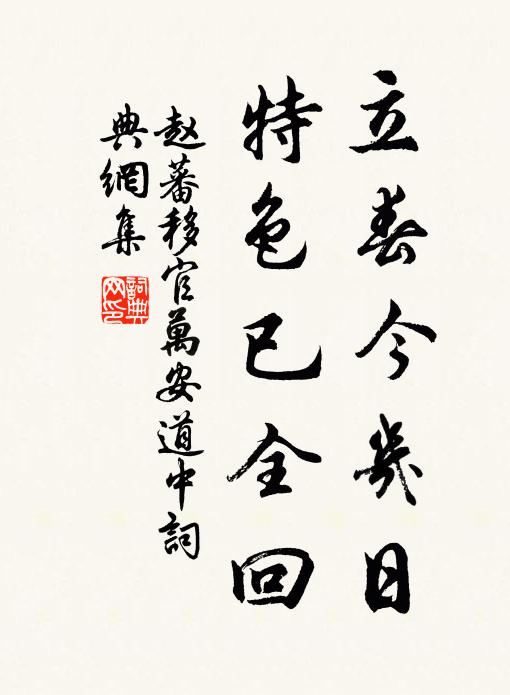 立春今幾日
特色已全回
赵蕃移官萬安道中詞
典網集
詞典
网印